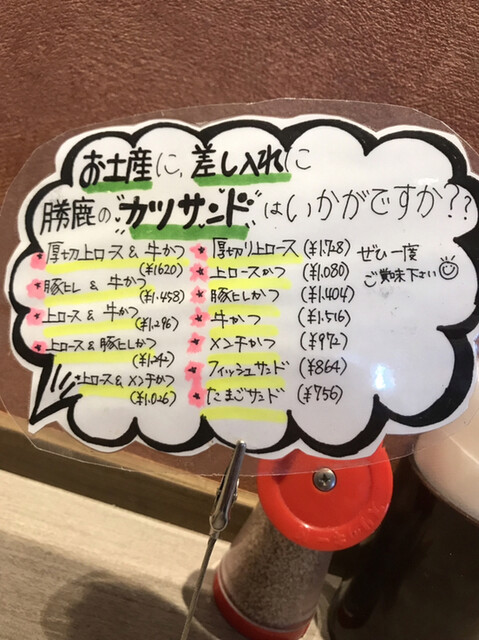 お土産に、差し入れに
勝鹿の"カツサンド"はいかがですか??
厚切上ロース & 牛かつ
(¥1620)
豚ヒレ & 牛かつ
(¥1.458)
上ロース & 牛かつ
(¥1.296)
上ロース & 豚ヒレかつ
(¥1.242)
上ロース & メンチかつ
(¥1.026)
厚切り上ロース (¥1.728)
上ロースかつ (¥1.080)
豚ヒレかつ (¥1.404)
牛かつ (¥1.516)
メンチかつ (¥972)
フィッシュサンド (¥864)
たまごサンド (¥756)
ぜひ一度
ご賞味下さい